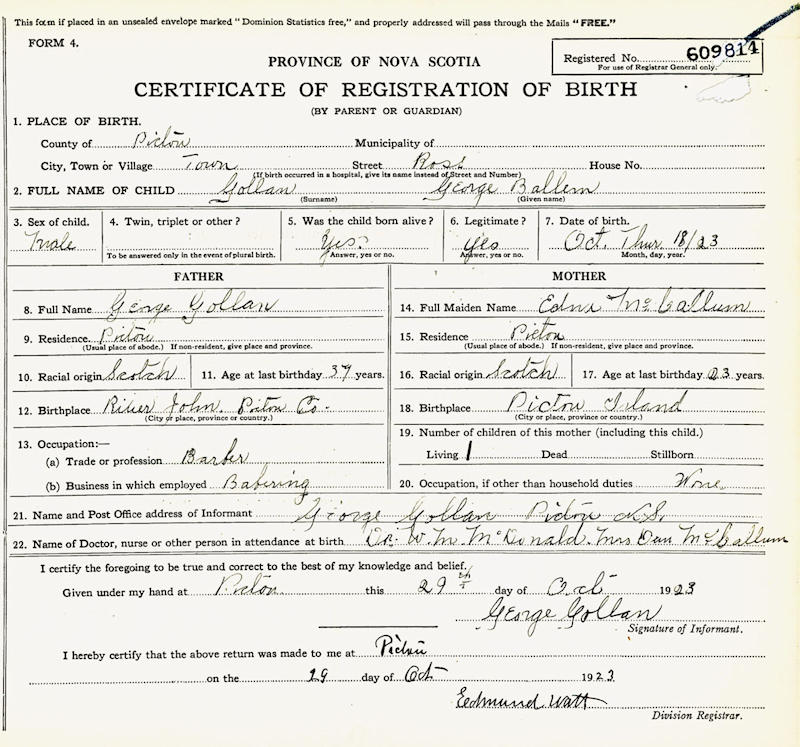 This form if placed in an unsealed envelope marked “Dominion Statistics free,” and properly addressed will pass through the Mails “FREE.”
FORM 4.
PROVINCE OF NOVA SCOTIA
Registered No. 609814
For use of Registrar General only.
CERTIFICATE OF REGISTRATION OF BIRTH
(BY PARENT OR GUARDIAN)
1. PLACE OF BIRTH.
County of Pictou Municipality of
City, Town or Village Town Street Ross House No.
(If birth occurred in a hospital, give its name instead of Street and Number)
2. FULL NAME OF CHILD Gollan George Ballem
(Surname) (Given name)
3. Sex of child. 4. Twin, triplet or other? 5. Was the child born alive? 6. Legitimate? 7. Date of birth.
Male Yes. Yes Oct. Thur 18/23
To be answered only in the event of plural birth. Answer, yes or no. Answer, yes or no. Month, day, year.
FATHER MOTHER
8. Full Name George Gollan 14. Full Maiden Name Edna McCallum
9. Residence. Pictou 15. Residence Pictou
(Usual place of abode.) If non-resident, give place and province. (Usual place of abode.) If non-resident, give place and province.
10. Racial origin Scotch 11. Age at last birthday 37 years. 16. Racial origin Scotch 17. Age at last birthday 23 years.
12. Birthplace River John. Pictou Co. 18. Birthplace Pictou Island
(City or place, province or country.) (City or place, province or country.)
13. Occupation:— 19. Number of children of this mother (including this child.)
(a) Trade or profession Barber Living 1 Dead Stillborn
(b) Business in which employed Babering 20. Occupation, if other than household duties
21. Name and Post Office address of Informant George Gollan Pictou N.S.
22. Name of Doctor, nurse or other person in attendance at birth Dr. W. M. McDonald. Mrs Dan McCallum
I certify the foregoing to be true and correct to the best of my knowledge and belief.
Given under my hand at Pictou this 29 th day of Oct 1923
George Gollan
Signature of Informant.
I hereby certify that the above return was made to me at Pictou
on the 29 day of Oct 1923
Eedmund Watt
Division Registrar.